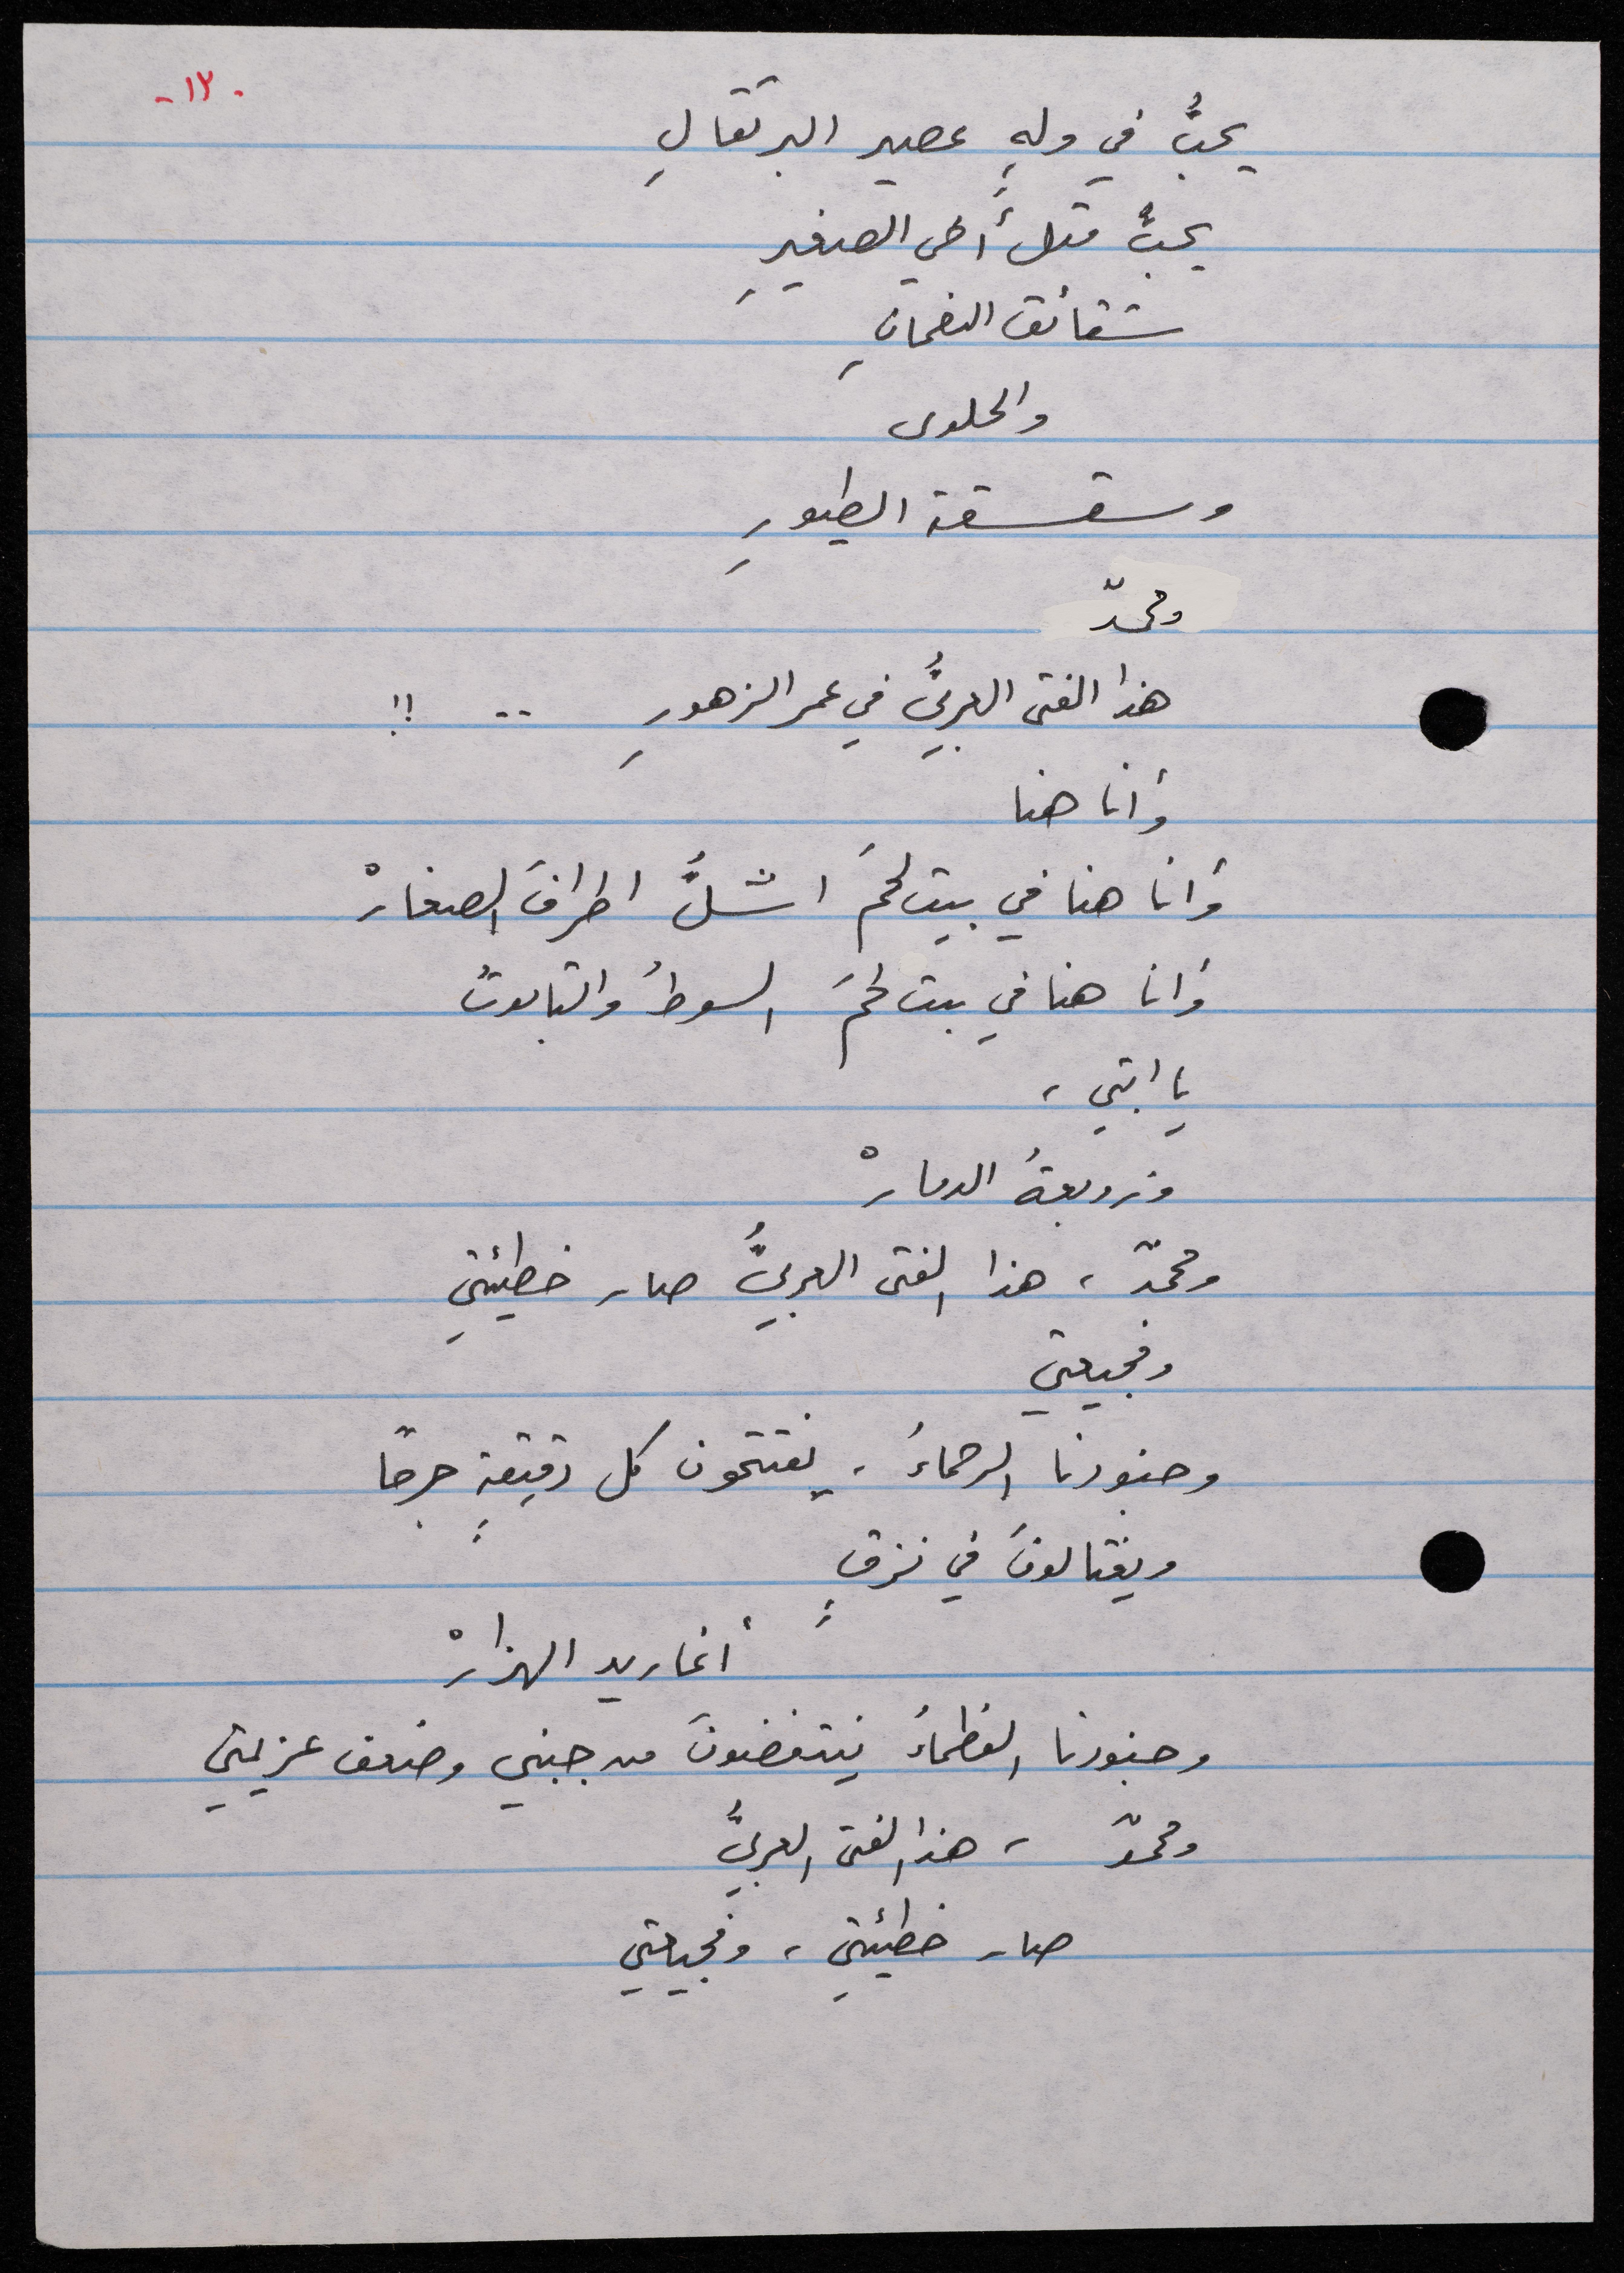 -١٢٠
يحبُّ في ولهٍ عصير البرتقالِ
يحبُّ مثل أخي الصغيرِ
شقائق النعمانِ
والحلوى
وسقسقة الطيورِ
ومحمدّ
هذا الفتى العربيُّ في عمر الزهورِ .. !!
وأنا هنا
وأنا هنا في بيت لحمَ اشلُّ اطرافَ الصغارْ
وأنا هنا في بيت لحمَ السوطُ والتابوتُ
يا ابتي ،
وزوبعةُ الدمارْ
ومحمدّ ، هذا الفتى العربيُّ صار خطيئتي
وفجيعتي
وجنودنا الرحماءُ ، يفتتحون كل دقيقةٍ جرحًا
ويغتالونَ في نزقٍ
أغاريد الهزارْ
وجنودنا العظماءُ ينتفضونَ من جبني وضعف عزيمتي
ومحمدّ ، هذا الفتى العربيُّ
صار خطيئتي ، وفجيعتي